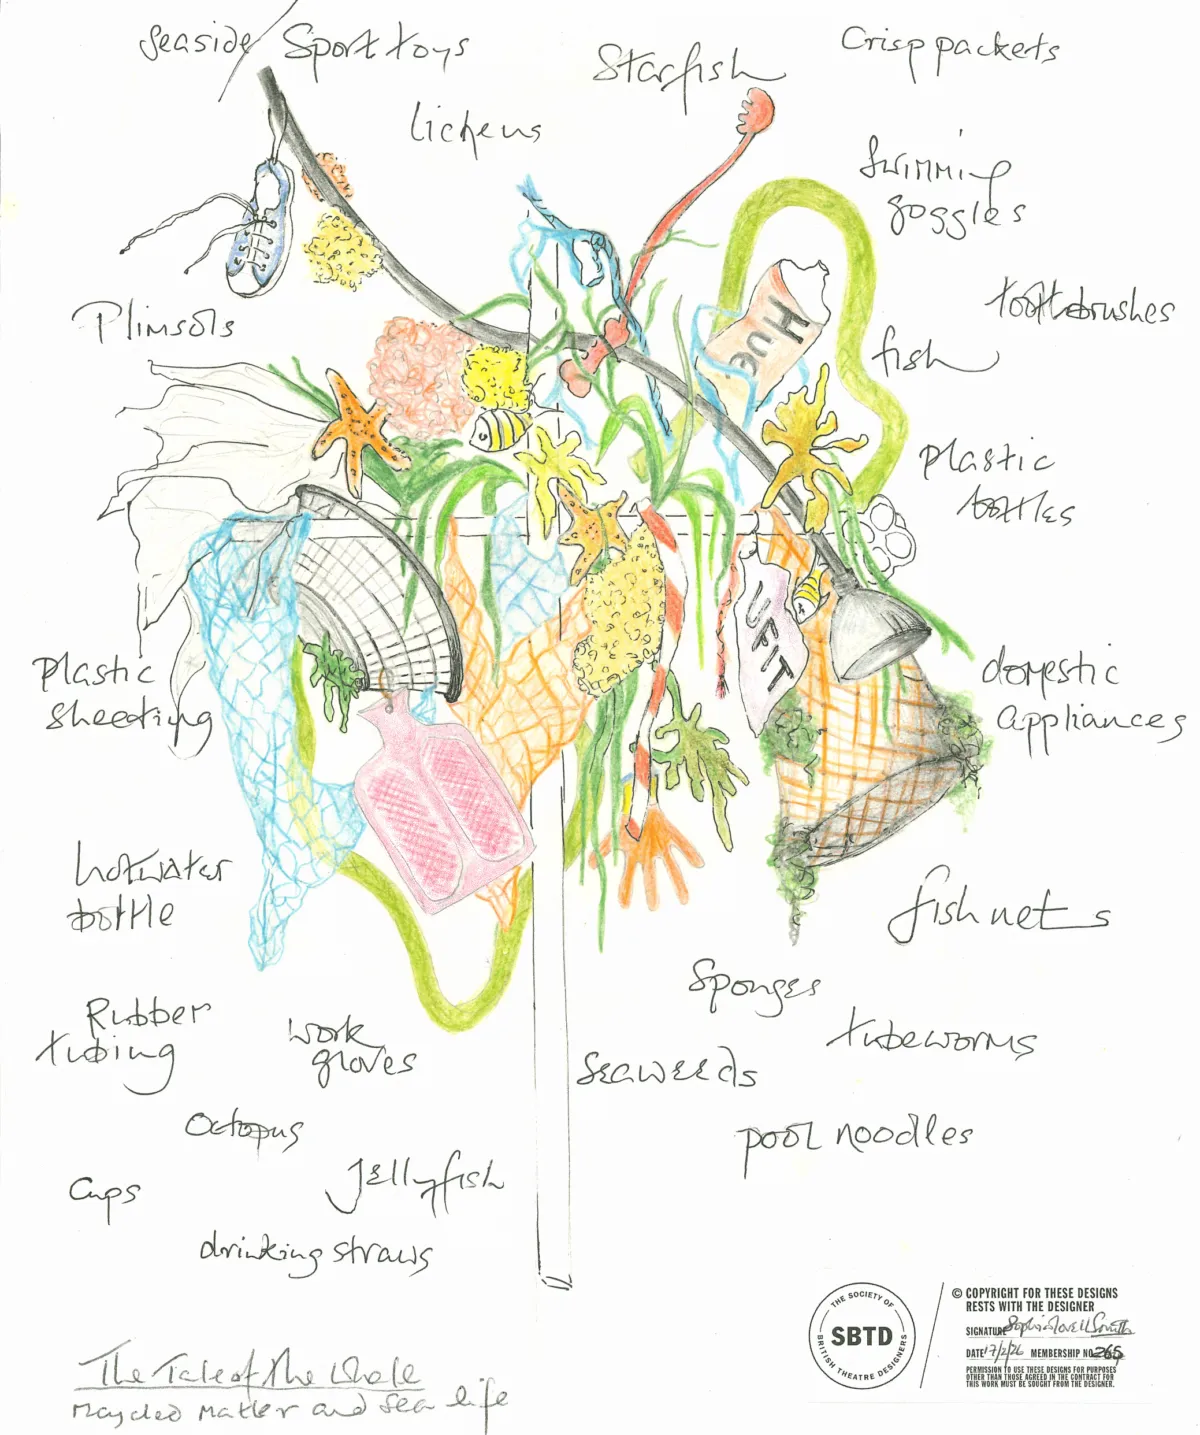 seaside / Sport toys
Starfish
Crisp packets
lichens
Swimming
goggles
toothbrushes
Plimsols
fish
HUE
plastic
bottles
UFIT
Plastic
sheeting
domestic
appliances
hotwater
bottle
fish nets
Sponges
Rubber
tubing
work
gloves
tubeworms
seaweeds
Octopus
pool noodles
Jellyfish
Cups
drinking straws
THE SOCIETY OF
SBTD
BRITISH THEATRE DESIGNERS
© COPYRIGHT FOR THESE DESIGNS
RESTS WITH THE DESIGNER
SIGNATURE
DATE 17/2/26 MEMBERSHIP NO 265
PERMISSION TO USE THESE DESIGNS FOR PURPOSES
OTHER THAN THOSE AGREED IN THE CONTRACT FOR
THIS WORK MUST BE SOUGHT FROM THE DESIGNER.
The Tale of the Whale
Recycled matter and sea life